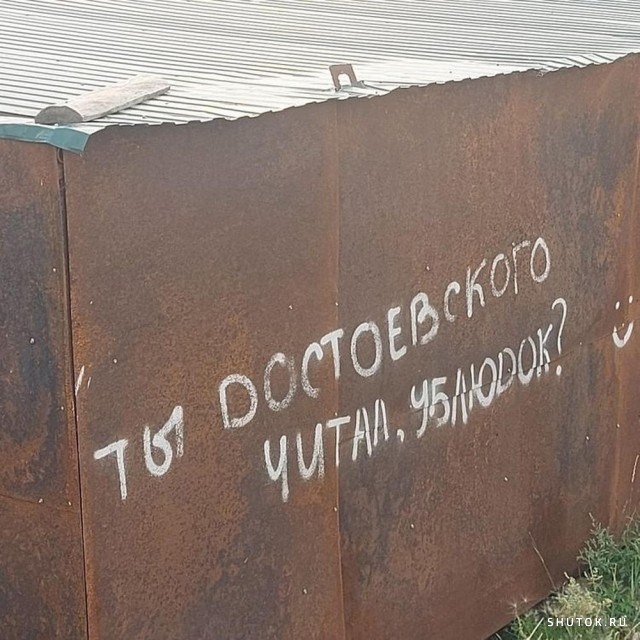 ТЫ DОСТОЕВСКОГО
ЧИТАЛ, УБЛЮDОК?
SHUTOK.RU